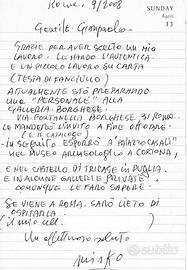 Roma, 9/2008
SUNDAY
April
13
Gentile Giampaolo.
GRAZIE PER AVER SCELTO UN MIO
LAVORO - LE MANDO L'AUTENTICA
E UN PICCOLO LAVORO SU CARTA
(TESTA DI FANCIULLO)
ATTUALMENTE STO PREPARANDO
UNA "PERSONALE" ALLA
GALLERIA BORGHESE.
VIA FONTANELLA BORGHESE 31 ROMA.
LE MANDERÒ L'INVITO A FINE OTTOBRE.
(E IL CATALOGO)
IN SEGUITO ESPORRÒ A "PALAZZO CASALI"
NEL MUSEO ARCHEOLOGICO A CORTONA,
E NEL CASTELLO DI TRICASE IN PUGLIA
E IN ALCUNE GALLERIE PRIVATE,
COMUNQUE LE FARÒ SAPERE.
SE VIENE A ROMA. SARÒ LIETO DI
OSPITARLA.
(il mio cell.
Un affettuoso saluto
subito